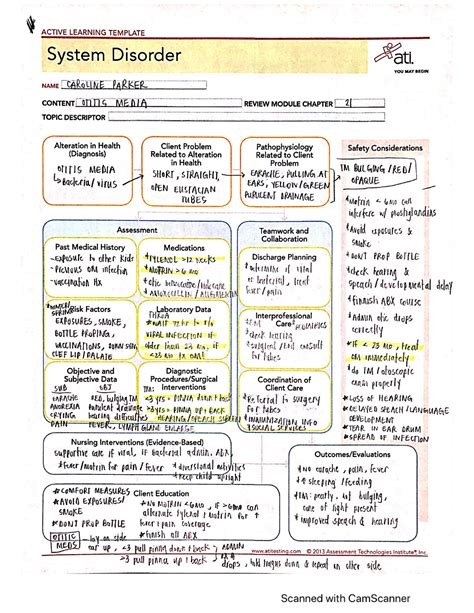 ACTIVE LEARNING TEMPLATE
System Disorder
ati.
YOU MAY BEGIN
NAME CAROLINE PARKER
CONTENT OTITIS MEDIA
REVIEW MODULE CHAPTER 21
TOPIC DESCRIPTOR
Alteration in Health
(Diagnosis)
OTITIS MEDIA
↳ Bacteria/virus
Client Problem
Related to Alteration
in Health
SHORT, STRAIGHT,
OPEN EUSTACIAN
TUBES
Pathophysiology
Related to Client
Problem
EARACHE, PULLING AT
EARS, YELLOW/GREEN
PURULENT DRAINAGE
Safety Considerations
TM BULGING/RED/
OPAQUE
Motrin < 6mo can
interfere w/
Avoid exposures &
smoke
DON'T PROP BOTTLE
check hearing &
speech/developmental delay
finish ABX course
Admin otic drops
correctly
IF < 23 mo, treat
om immediately
do TM
exam properly
LOSS OF HEARING
DELAYED SPEACH/LANGUAGE
DEVELOPMENT
TEAR IN EAR DRUM
SPREAD OF INFECTION
Assessment
Past Medical History
- exposure to other kids
- previous om infection
- vaccination Hx
Medications
TYLENOL
MOTRIN > 6 mo
AMOXICILLIN/AUGMENTIN
Risk Factors
EXPOSURES, SMOKE,
BOTTLE PROPING,
VACCINATIONS, DOWN SYN
CLEF LIP/PALATE
Laboratory Data
viral infection if
older than 23 mo, if
< 23 mo TX OM!
Objective and
Subjective Data
SUB
EARACHE
ANOREXIA
CRYING
PAIN
OBJ
RED, bulging TM
purulent drainage
hearing difficulties
FEVER, LYMPH GLAND ENLARGE
Diagnostic
Procedures/Surgical
Interventions
<3 yrs = PINNA down & back
>3 yrs = PINNA up & back
HEARING/SPEACH SCREEN
Teamwork and
Collaboration
Discharge Planning
determine if viral
or bacterial, treat
fever/pain
Interprofessional
Care
check hearing
surgeon/ent consult
for tubes
Coordination of
Client Care
Referral to surgery
for tubes
IMMUNIZATION INFO
SOCIAL SERVICES
Nursing Interventions (Evidence-Based)
supportive care if viral, if bacterial admin. ABX,
fever/motrin for pain/fever
diversional activities
keep child upright
Outcomes/Evaluations
No earache, pain, fever
↑ sleeping/feeding
TM: pearly, not bulging,
cone of light present
improved speech & hearing
Client Education
COMFORT MEASURES
AVOID EXPOSURES/
SMOKE
DONT PROP BOTTLE
NO MOTRIN < 6MO, IF > 6mo can
alternate tylenol & motrin for ↑
fever & pain coverage
finish all ABX
OTITIC
MEDS
lay on side
ear up, <3 pull pinna down & back, ADMIN
drops, hold & repeat on other side
www.atitesting.com © 2013 Assessment Technologies Institute®, Inc.
Scanned with CamScanner